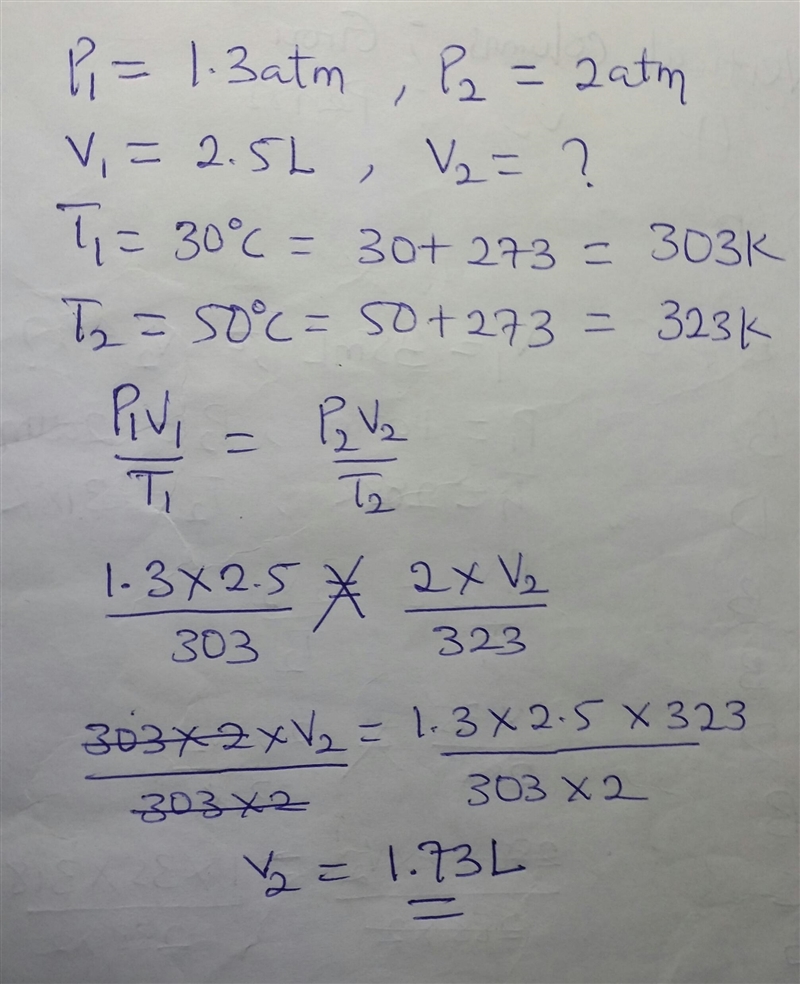 P₁ = 1.3atm , P₂ = 2atm
V₁ = 2.5L , V₂ = ?
T₁ = 30°C = 30+273 = 303K
T₂ = 50°C = 50+273 = 323K
P₁V₁/T₁ = P₂V₂/T₂
1.3×2.5/303 = 2×V₂/323
303×2×V₂/303×2 = 1.3×2.5×323/303×2
V₂ = 1.73L